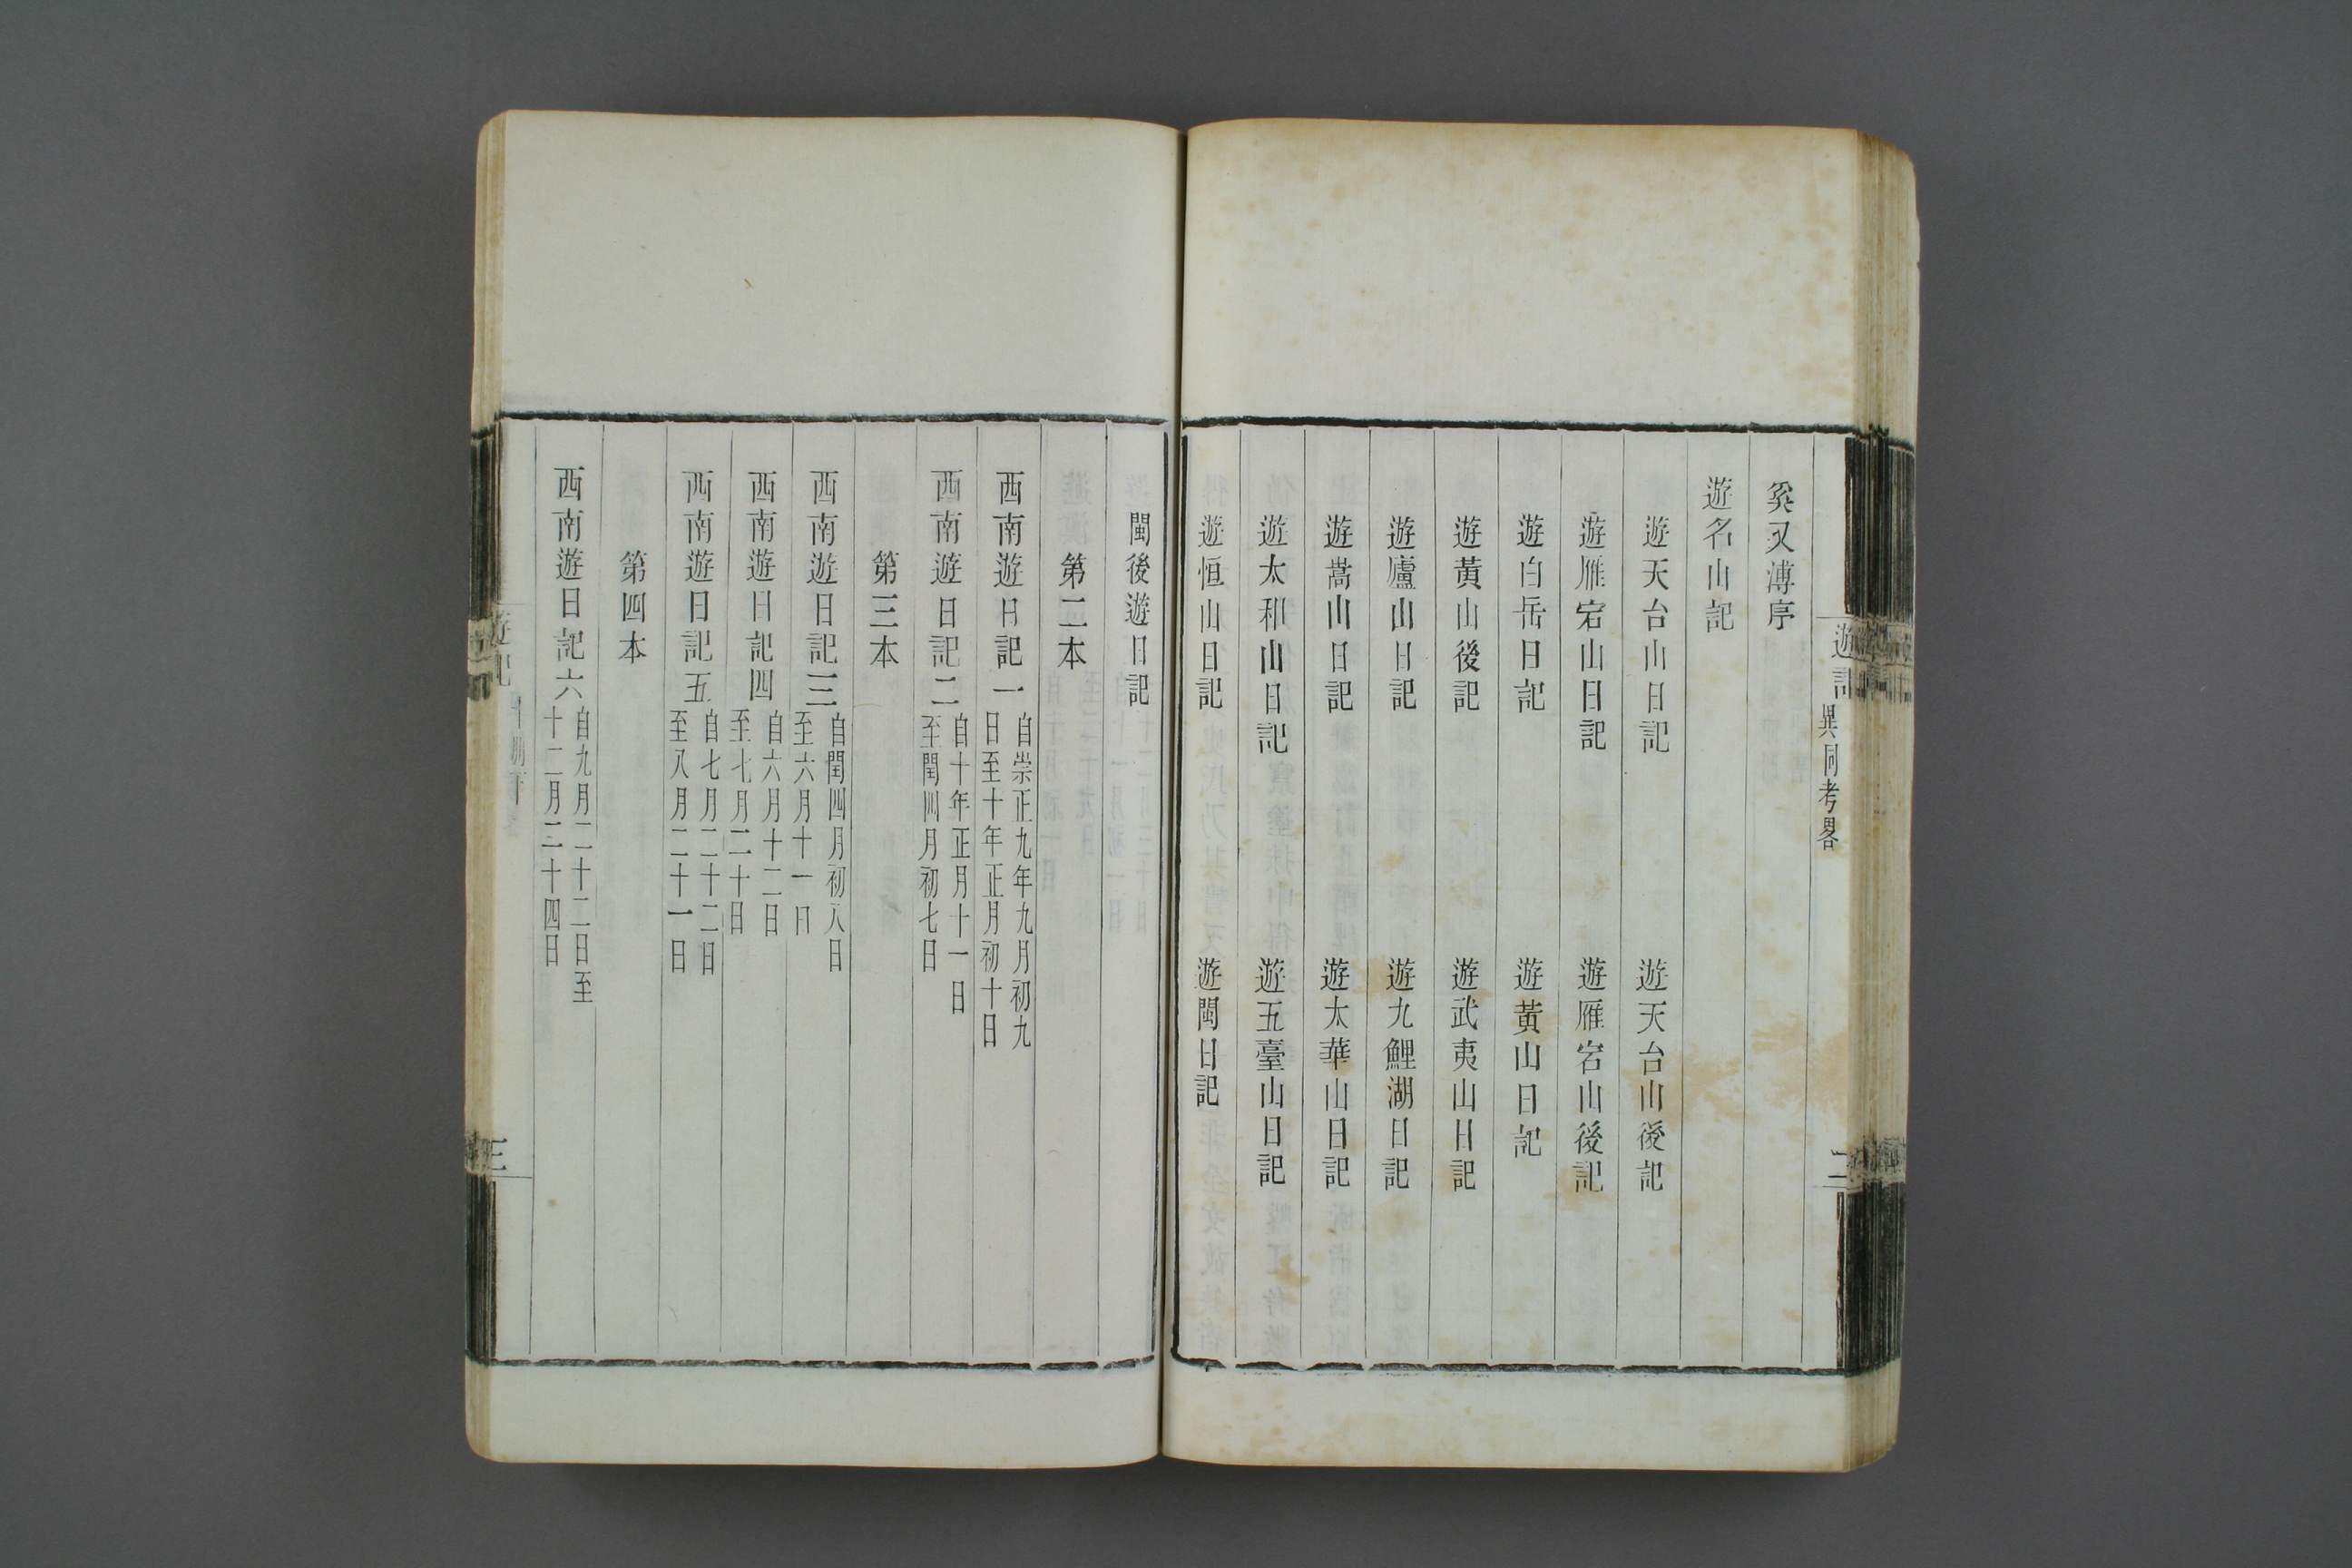 遊記
異同考畧
二
奚又溥序
遊名山記
遊天台山日記
遊天台山後記
遊雁宕山日記
遊雁宕山後記
遊白岳日記
遊黃山日記
遊黃山後記
遊武夷山日記
遊廬山日記
遊九鯉湖日記
遊嵩山日記
遊太華山日記
遊太和山日記
遊五臺山日記
遊恒山日記
遊閩日記
閩後遊日記
第二本
西南遊日記一
自崇正九年九月初九
日至十年正月初十日
西南遊日記二
自十年正月十一日
至閏四月初七日
第三本
西南遊日記三
自閏四月初八日
至六月十一日
西南遊日記四
自六月十二日
至七月二十日
西南遊日記五
自七月二十二日
至八月二十一日
第四本
西南遊日記六
自九月二十二日至
十二月二十四日
遊記
三